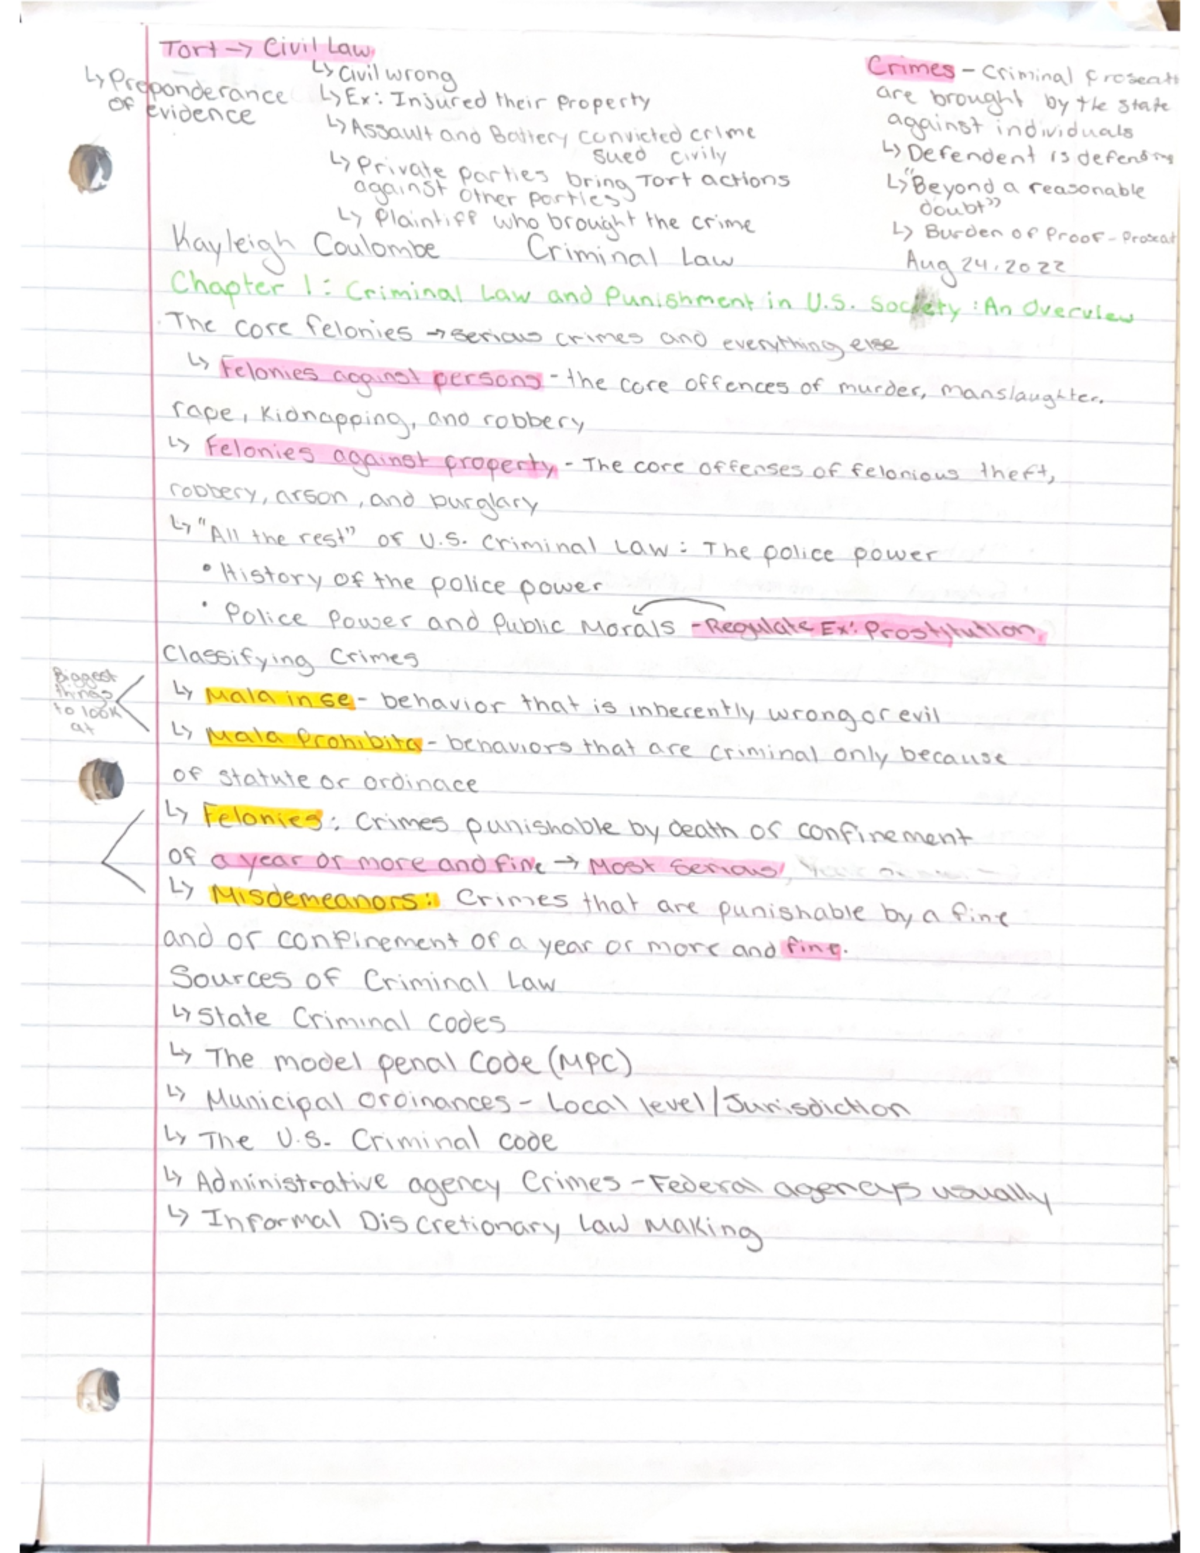 Tort → Civil Law
↳ Preponderance
of evidence
↳ Civil wrong
↳ Ex: Injured their Property
↳ Assault and Battery convicted crime
sued civily
↳ Private parties bring Tort actions
against other parties
↳ Plaintiff who brought the crime
Crimes - Criminal Prosecuti
are brought by the state
against individuals
↳ Defendent is defending
↳ "Beyond a reasonable
doubt"
↳ Burden of Proof - Prosecut
Kayleigh Coulombe Criminal Law Aug 24, 2022
Chapter 1: Criminal Law and Punishment in U.S. Society: An Overview
The core felonies → serious crimes and everything else
↳ Felonies against persons - the core offences of murder, manslaughter,
rape, kidnapping, and robbery
↳ Felonies against property - The core offenses of felonious theft,
robbery, arson, and burglary
↳ "All the rest" of U.S. Criminal Law: The police power
• History of the police power
• Police Power and Public Morals - Regulate Ex: Prostitution
Classifying Crimes
Biggest
things
to look
at
↳ Mala in se - behavior that is inherently wrong or evil
↳ Mala Prohibita - behaviors that are criminal only because
of statute or ordinace
↳ Felonies: Crimes punishable by death or confinement
of a year or more and fine → Most Serious,
↳ Misdemeanors: Crimes that are punishable by a fine
and or confinement of a year or more and fine.
Sources of Criminal Law
↳ State Criminal Codes
↳ The model penal Code (MPC)
↳ Municipal ordinances - Local level/Jurisdiction
↳ The U.S. Criminal code
↳ Administrative agency Crimes - Federal agencys usually
↳ Informal Discretionary Law Making